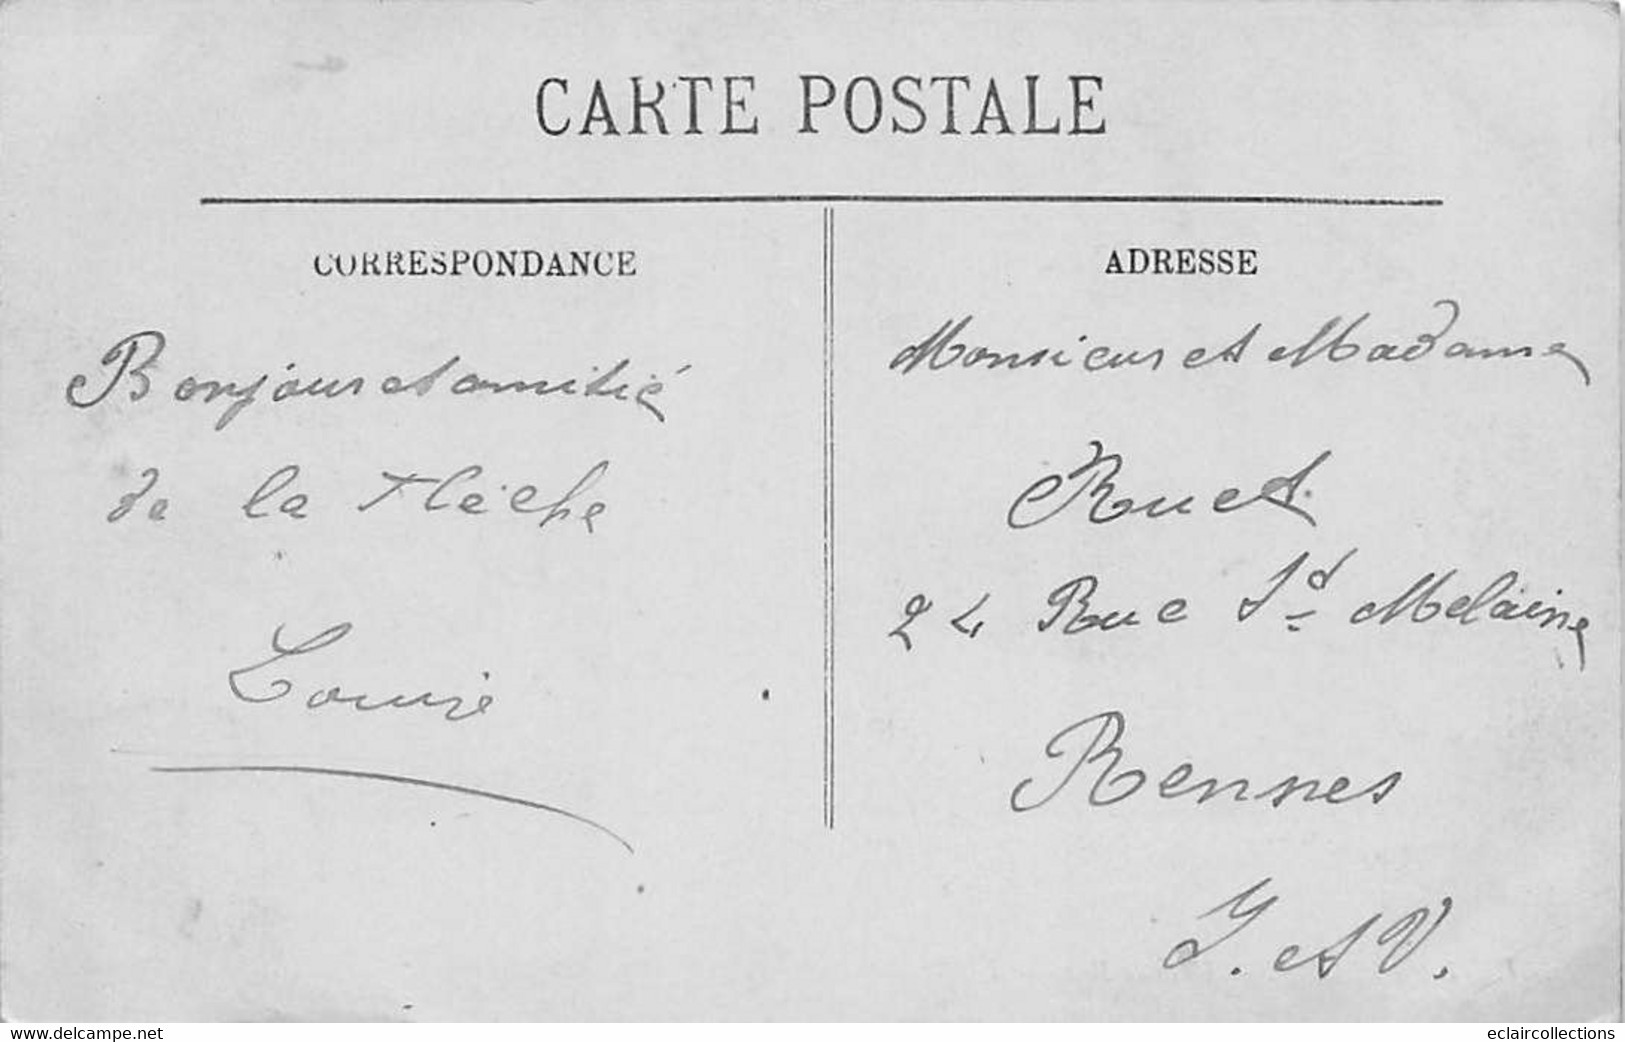 CARTE POSTALE
CORRESPONDANCE
Bonjour et amitié
de la Flèche
Louise
ADRESSE
Monsieur et Madame
Ruet
24 Rue St Melaine
Rennes
I. et V.
www.delcampe.net
eclaircollections